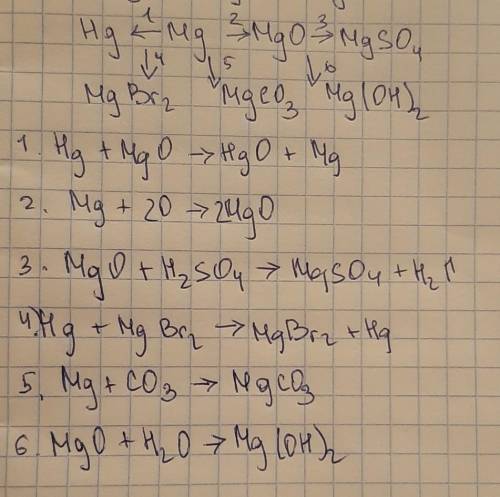 Hg ←1 Mg 2→ MgO 3→ MgSO₄
↓4 ↓5 ↓6
MgBr₂ MgCO₃ Mg(OH)₂
1. Hg + MgO → HgO + Mg
2. Mg + 2O → 2MgO
3. MgO + H₂SO₄ → MgSO₄ + H₂↑
4. Hg + MgBr₂ → MgBr₂ + Hg
5. Mg + CO₃ → MgCO₃
6. MgO + H₂O → Mg(OH)₂